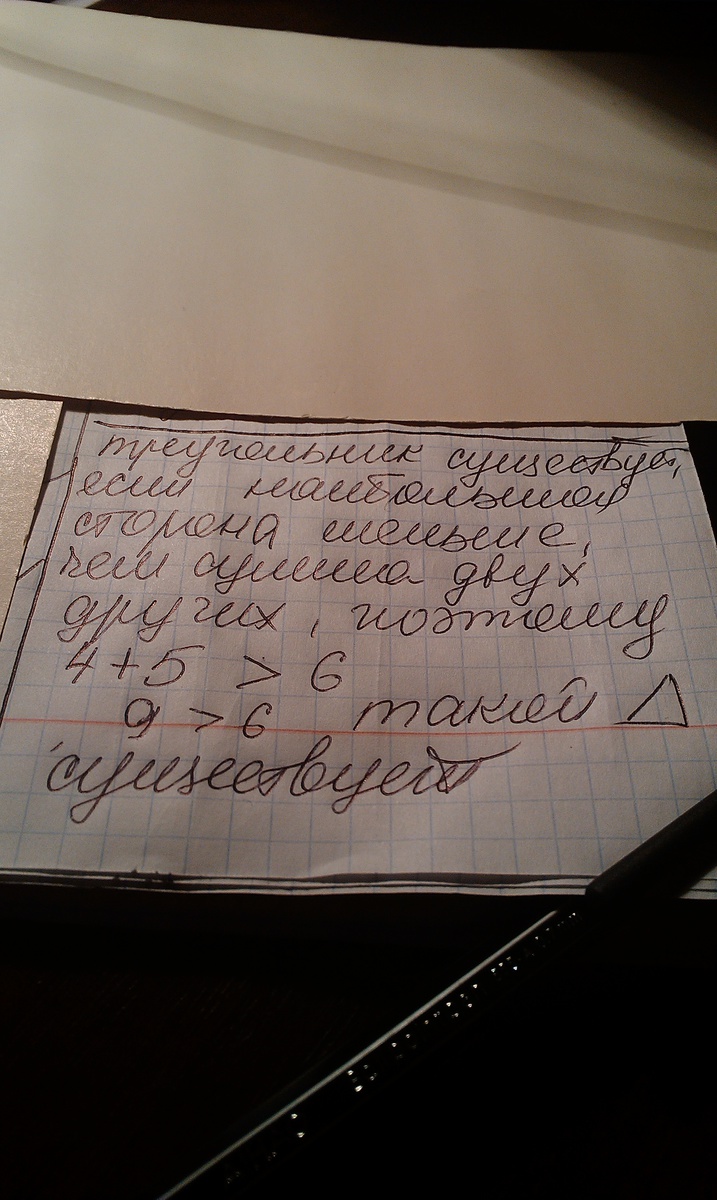 треугольник существует,
если наибольшая
сторона меньше,
чем сумма двух
других, поэтому
4+5 > 6
9 > 6 такой △
существует